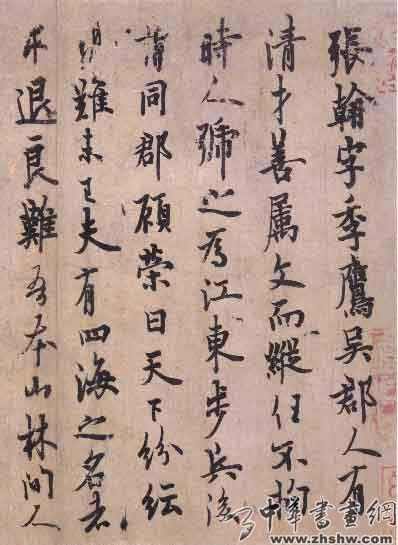 張翰字季鷹吳郡人有
清才善属文而縱任不拘
時人號之為江東步兵後
謂同郡顧榮曰天下紛紜
禍難未已夫有四海之名者
求退良難吾本山林間人
中華書畫網
www.zhshw.com